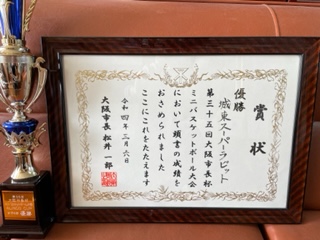 賞状
優勝
城東スーパーラビット
第三十五回大阪市長杯
ミニバスケットボール大会
において頭書の成績を
おさめられました
ここにこれをたたえます
令和四年三月六日
大阪市長 松井一郎
優勝